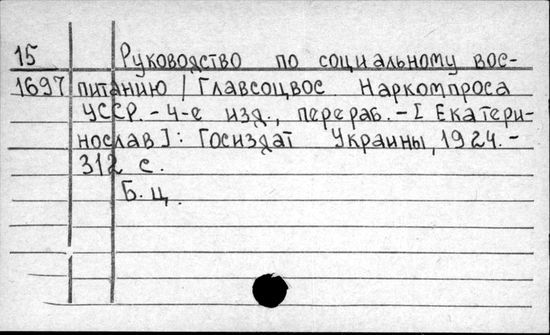 15 Руководство по социальному вос-
1697 питанию / Главсоцвос Наркомпроса
УССР. - 4-е изд., перераб. - [Екатери-
нослав]: Госиздат Украины, 1924. -
312 с.
Б.ц.